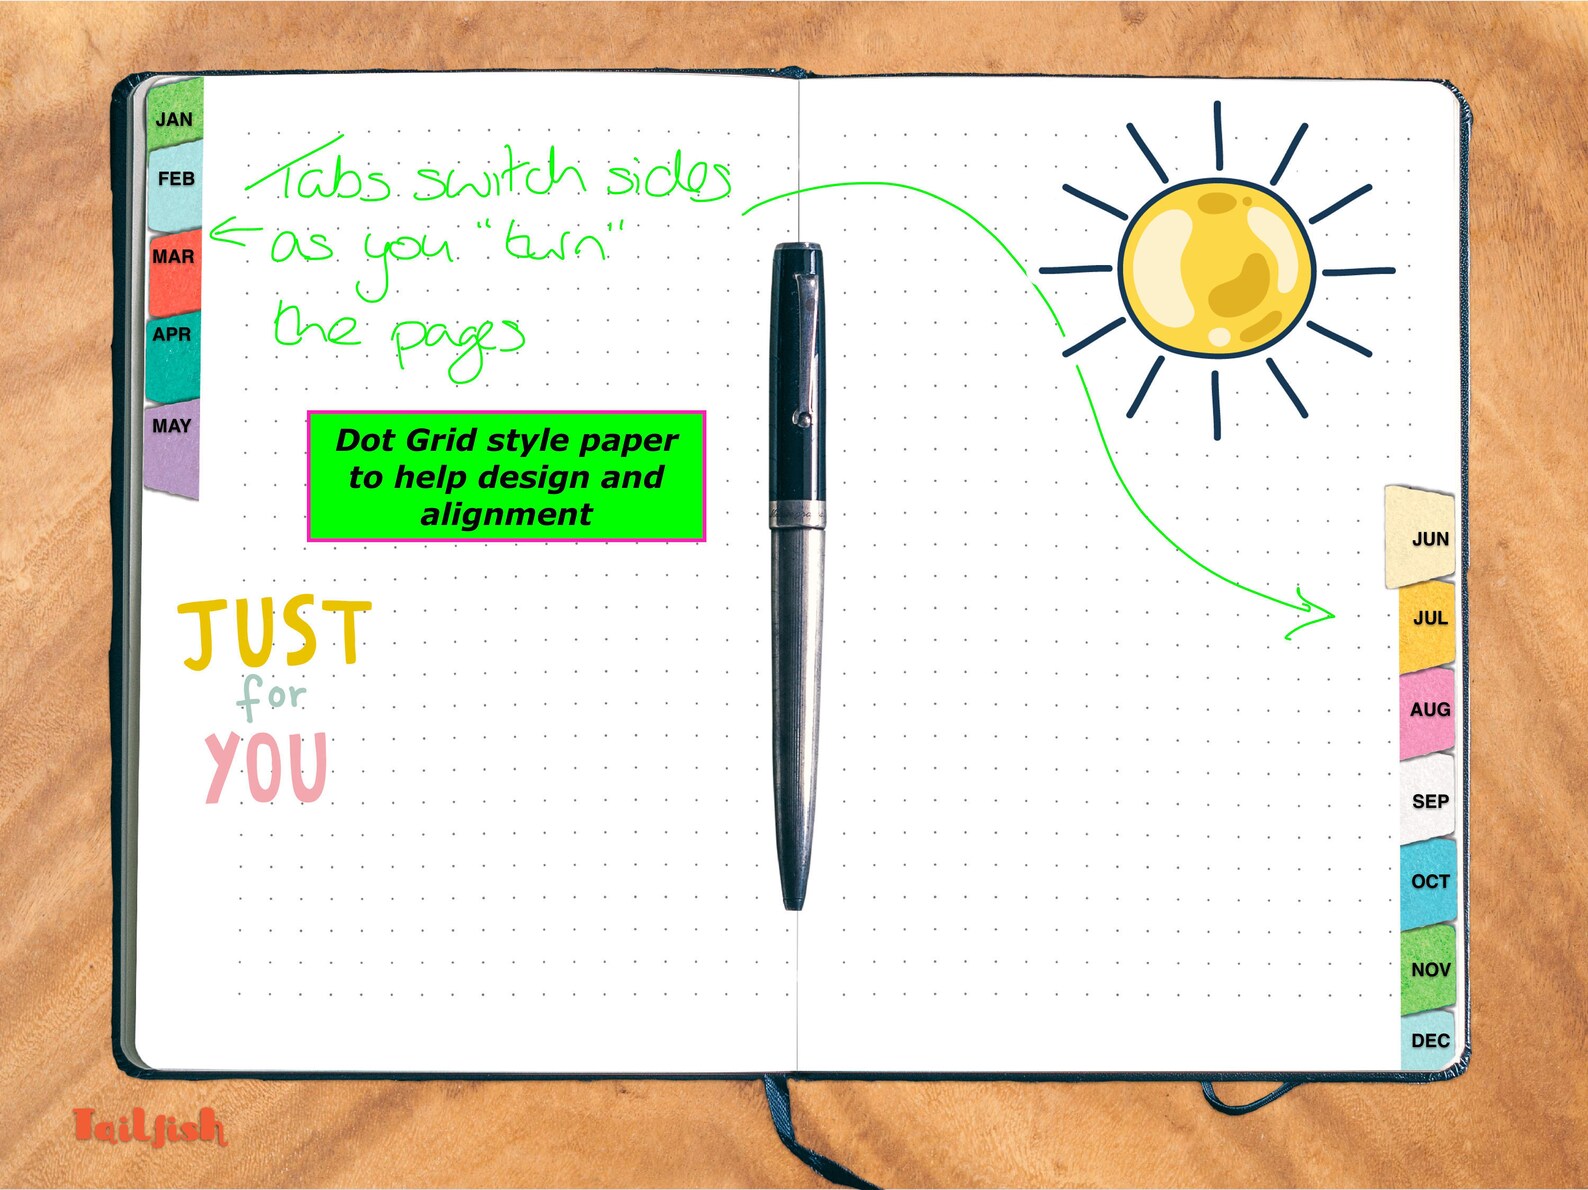 JAN
FEB
MAR
APR
MAY
Tabs switch sides
as you "turn"
the pages
Dot Grid style paper
to help design and
alignment
JUST
for
YOU
JUN
JUL
AUG
SEP
OCT
NOV
DEC
Tailfish